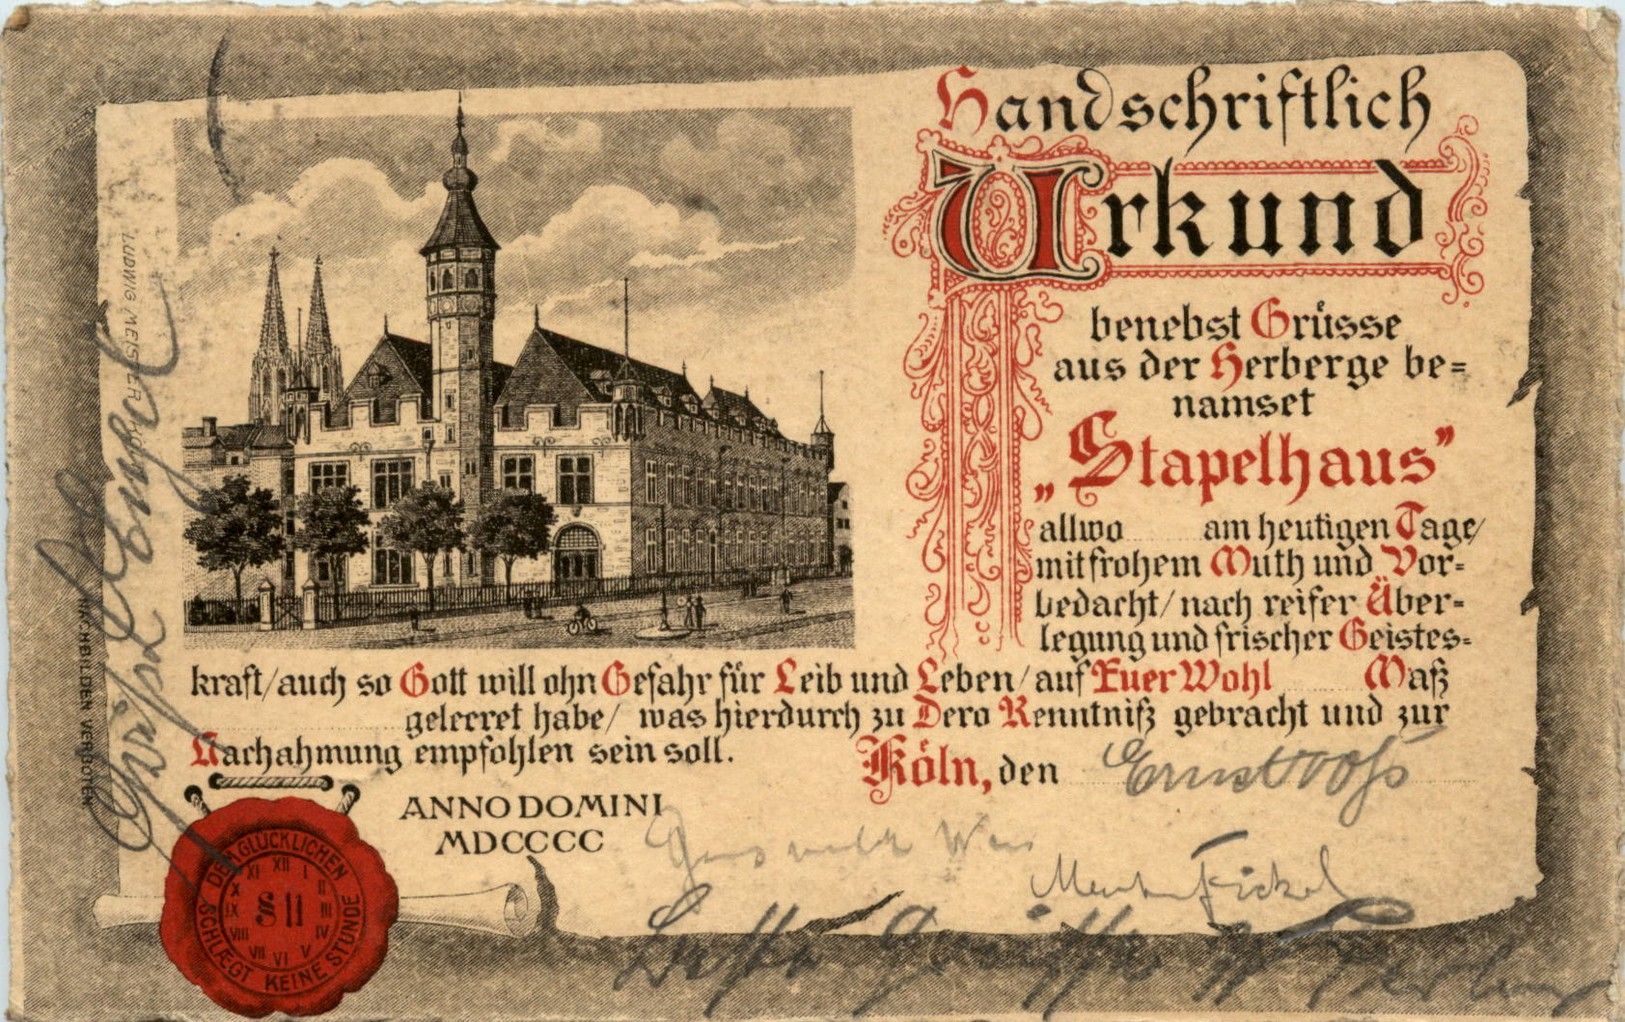 Handschriftlich
Urkund
benebst Grüsse
aus der Herberge be=
namset
„Stapelhaus”
allwo am heutigen Tage/
mit frohem Muth und Vor=
bedacht/ nach reifer Über=
legung und frischer Geistes=
kraft/auch so Gott will ohn Gefahr für Leib und Leben/auf Euer Wohl Maß
geleeret habe/ was hierdurch zu Dero Kenntniß gebracht und zur
Nachahmung empfohlen sein soll.
Köln, den
ANNO DOMINI
MDCCCC
DEM GLÜCKLICHEN
SCHLÆGT KEINE STUNDE
XII I II III IV V VI VII VIII IX X XI
LUDWIG MEISTER
NACHBILDEN VERBOTEN